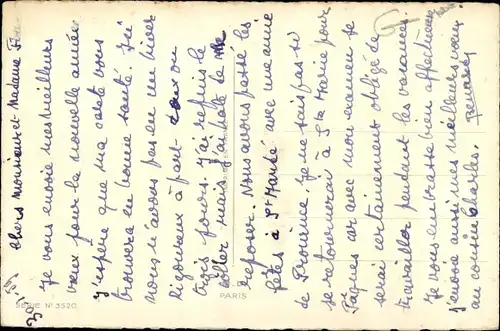 chers monsieur et Madame
Je vous envoie mes meilleurs
vœux pour la nouvelle année
J'espère que ma carte vous
trouvera en bonne santé. Ici
nous n'avons pas eu un hiver
rigoureux à part deux ou
trois jours. J'ai repris le
collier mais j'ai hâte de me
reposer. Nous avons passé les
fêtes à St Mandé avec une amie
de Provence. Je ne sais pas si
je retournerai à Ste Marie pour
Pâques car avec mon examen je
serai certainement obligé de
travailler pendant les vacances.
Je vous embrasse bien affectueusement
J'envoie aussi mes meilleurs vœux
au cousin Charles.
SERIE N° 3520
PARIS